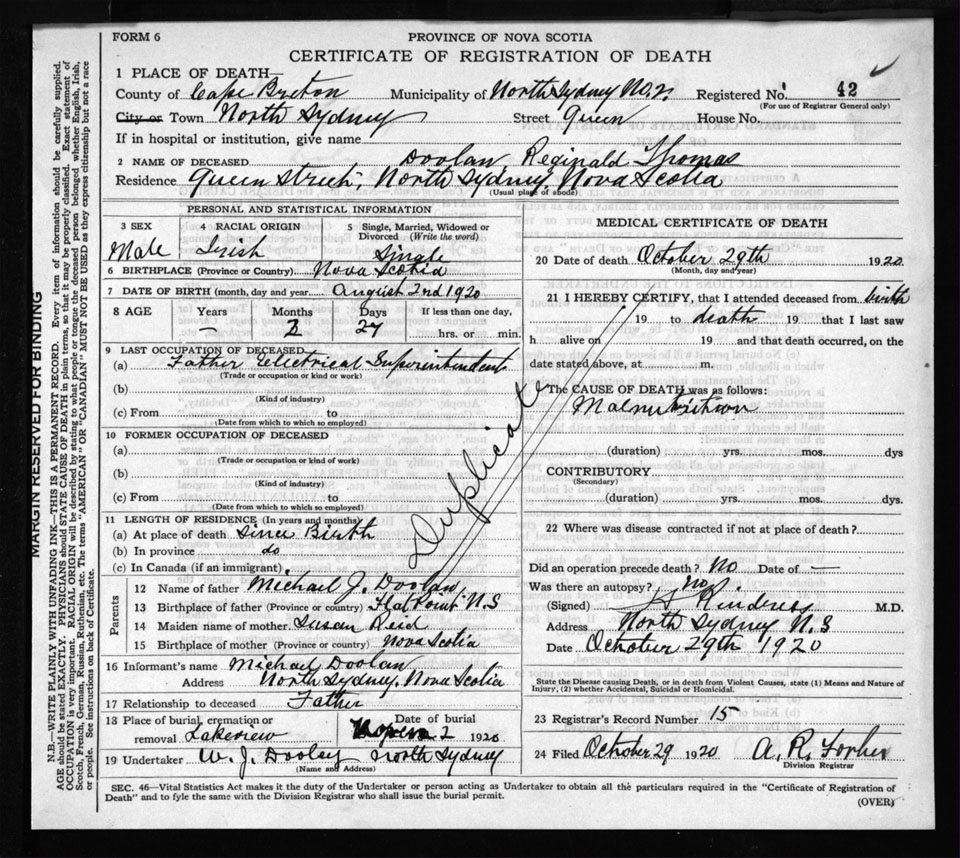 FORM 6
PROVINCE OF NOVA SCOTIA
CERTIFICATE OF REGISTRATION OF DEATH
1 PLACE OF DEATH—
County of Cape Breton Municipality of North Sydney No. 2. Registered No. 42
(For use of Registrar General only)
City or Town North Sydney Street Queen House No.
If in hospital or institution, give name
2 NAME OF DECEASED Doolan Reginald Thomas
Residence Queen Street, North Sydney, Nova Scotia
(Usual place of abode)
PERSONAL AND STATISTICAL INFORMATION
3 SEX 4 RACIAL ORIGIN 5 Single, Married, Widowed or Divorced (Write the word)
Male Irish Single
6 BIRTHPLACE (Province or Country) Nova Scotia
7 DATE OF BIRTH (month, day and year August 2nd 1920
8 AGE Years Months Days If less than one day,
— 2 27 hrs. or min.
9 LAST OCCUPATION OF DECEASED
(a) Father Electrical Superintendent
(Trade or occupation or kind or work)
(b)
(Kind of industry)
(c) From to
(Date from which to which so employed)
10 FORMER OCCUPATION OF DECEASED
(a)
(Trade or occupation or kind of work)
(b)
(Kind of industry)
(c) From to
(Date from which to which so employed)
11 LENGTH OF RESIDENCE (In years and months)
(a) At place of death Since Birth
(b) In province do
(c) In Canada (if an immigrant)
Parents
12 Name of father Michael J. Doolan
13 Birthplace of father (Province or country) Flat Point N.S
14 Maiden name of mother Susan Reid
15 Birthplace of mother (Province or country) Nova Scotia
16 Informant's name Michael Doolan
Address North Sydney, Nova Scotia
17 Relationship to deceased Father
18 Place of burial, cremation or removal Lakeview Date of burial 2 1920
19 Undertaker W. J. Dooley North Sydney
(Name and Address)
Duplicate
MEDICAL CERTIFICATE OF DEATH
20 Date of death October 29th 1920
(Month, day and year)
21 I HEREBY CERTIFY, that I attended deceased from birth
19 to death 19 that I last saw
h alive on 19 and that death occurred, on the
date stated above, at m.
The CAUSE OF DEATH was as follows:
Malnutrition
(duration) yrs. mos. dys
CONTRIBUTORY
(Secondary)
(duration) yrs. mos. dys.
22 Where was disease contracted if not at place of death?
Did an operation precede death? No Date of —
Was there an autopsy? No
(Signed) M.D.
Address North Sydney N.S
Date October 29th 1920
State the Disease causing Death, or in death from Violent Causes, state (1) Means and Nature of Injury, (2) whether Accidental, Suicidal or Homicidal.
23 Registrar's Record Number 15
24 Filed October 29 1920 A. R. Forbes
Division Registrar
SEC. 46—Vital Statistics Act makes it the duty of the Undertaker or person acting as Undertaker to obtain all the particulars required in the "Certificate of Registration of
Death" and to fyle the same with the Division Registrar who shall issue the burial permit.
(OVER)
MARGIN RESERVED FOR BINDING
N.B.—WRITE PLAINLY WITH UNFADING INK—THIS IS A PERMANENT RECORD. Every item of information should be carefully supplied.
AGE should be stated EXACTLY. PHYSICIANS should STATE CAUSE OF DEATH in plain terms, so that it may be properly classified. Exact statement of
OCCUPATION is very important. RACIAL ORIGIN will be described by stating to what people or tongue the deceased person belonged whether English, Irish,
Scotch, French, German, Russian, Ruthenian, etc. The terms "AMERICAN" OR "CANADIAN" MUST NOT BE USED as they express citizenship but not a race
or people. See instructions on back of Certificate.